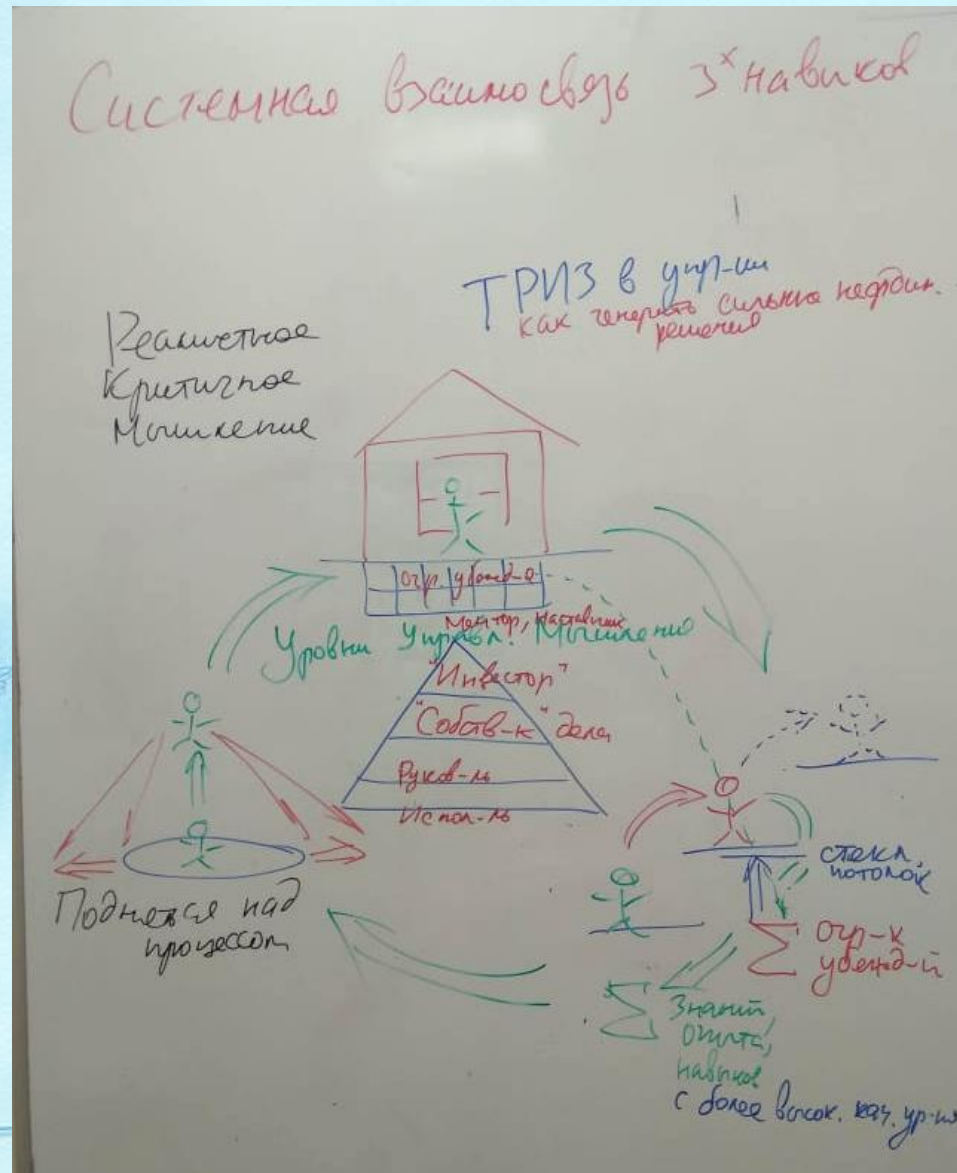 Системная взаимосвязь 3х навиков
ТРИЗ в упр-ии
как генерить сильные неордин.
решения
Реалистное
Критичное
Мышление
Огр. убежд-я
Ментор, наставник
Уровни Управл. Мышления
"Инвестор"
"Собств-к" дела
Руков-ль
Испол-ль
Подняться над
процессом
стекл.
потолок
Σ Огр-х
убежд-й
Σ Знаний,
опыта,
навыков
с более высок. кач. ур-ня